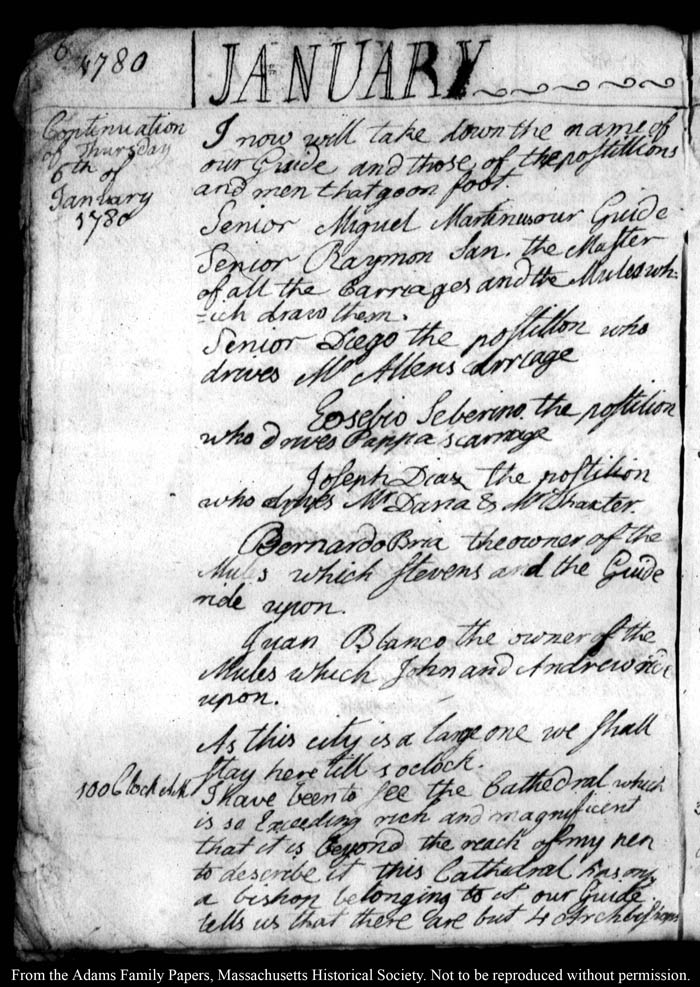 6
1780
JANUARY
Continuation
of Thursday
6th of
January
1780
I now will take down the name of
our Guide and those of the postillions
and men that go on foot.
Senior Miguel Martinus our Guide
Senior Raymon San. the Master
of all the Carriages and the Mules wh-
=ich draw them.
Senior Diego the postillon who
drives Mr Allens carriage
Eosebio Seberino, the postilion
who drives Pappa's carriage
Joseph Diaz the postilion
who drives Mr Dana & Mr Thaxter.
Bernardo Bria the owner of the
Mules which Stevens and the Guide
ride upon.
Juan Blanco the owner of the
Mules which John and Andrew ride
upon.
As this city is a large one we shall
stay here till 1 oclock.
10 o Clock A M
I have been to see the Cathedral which
is so Exeeding rich and magnificent
that it is beyond the reach of my pen
to describe it this Cathedral has only
a bishop belonging to it our Guide
tells us that there are but 4 Archbishops
From the Adams Family Papers, Massachusetts Historical Society. Not to be reproduced without permission.